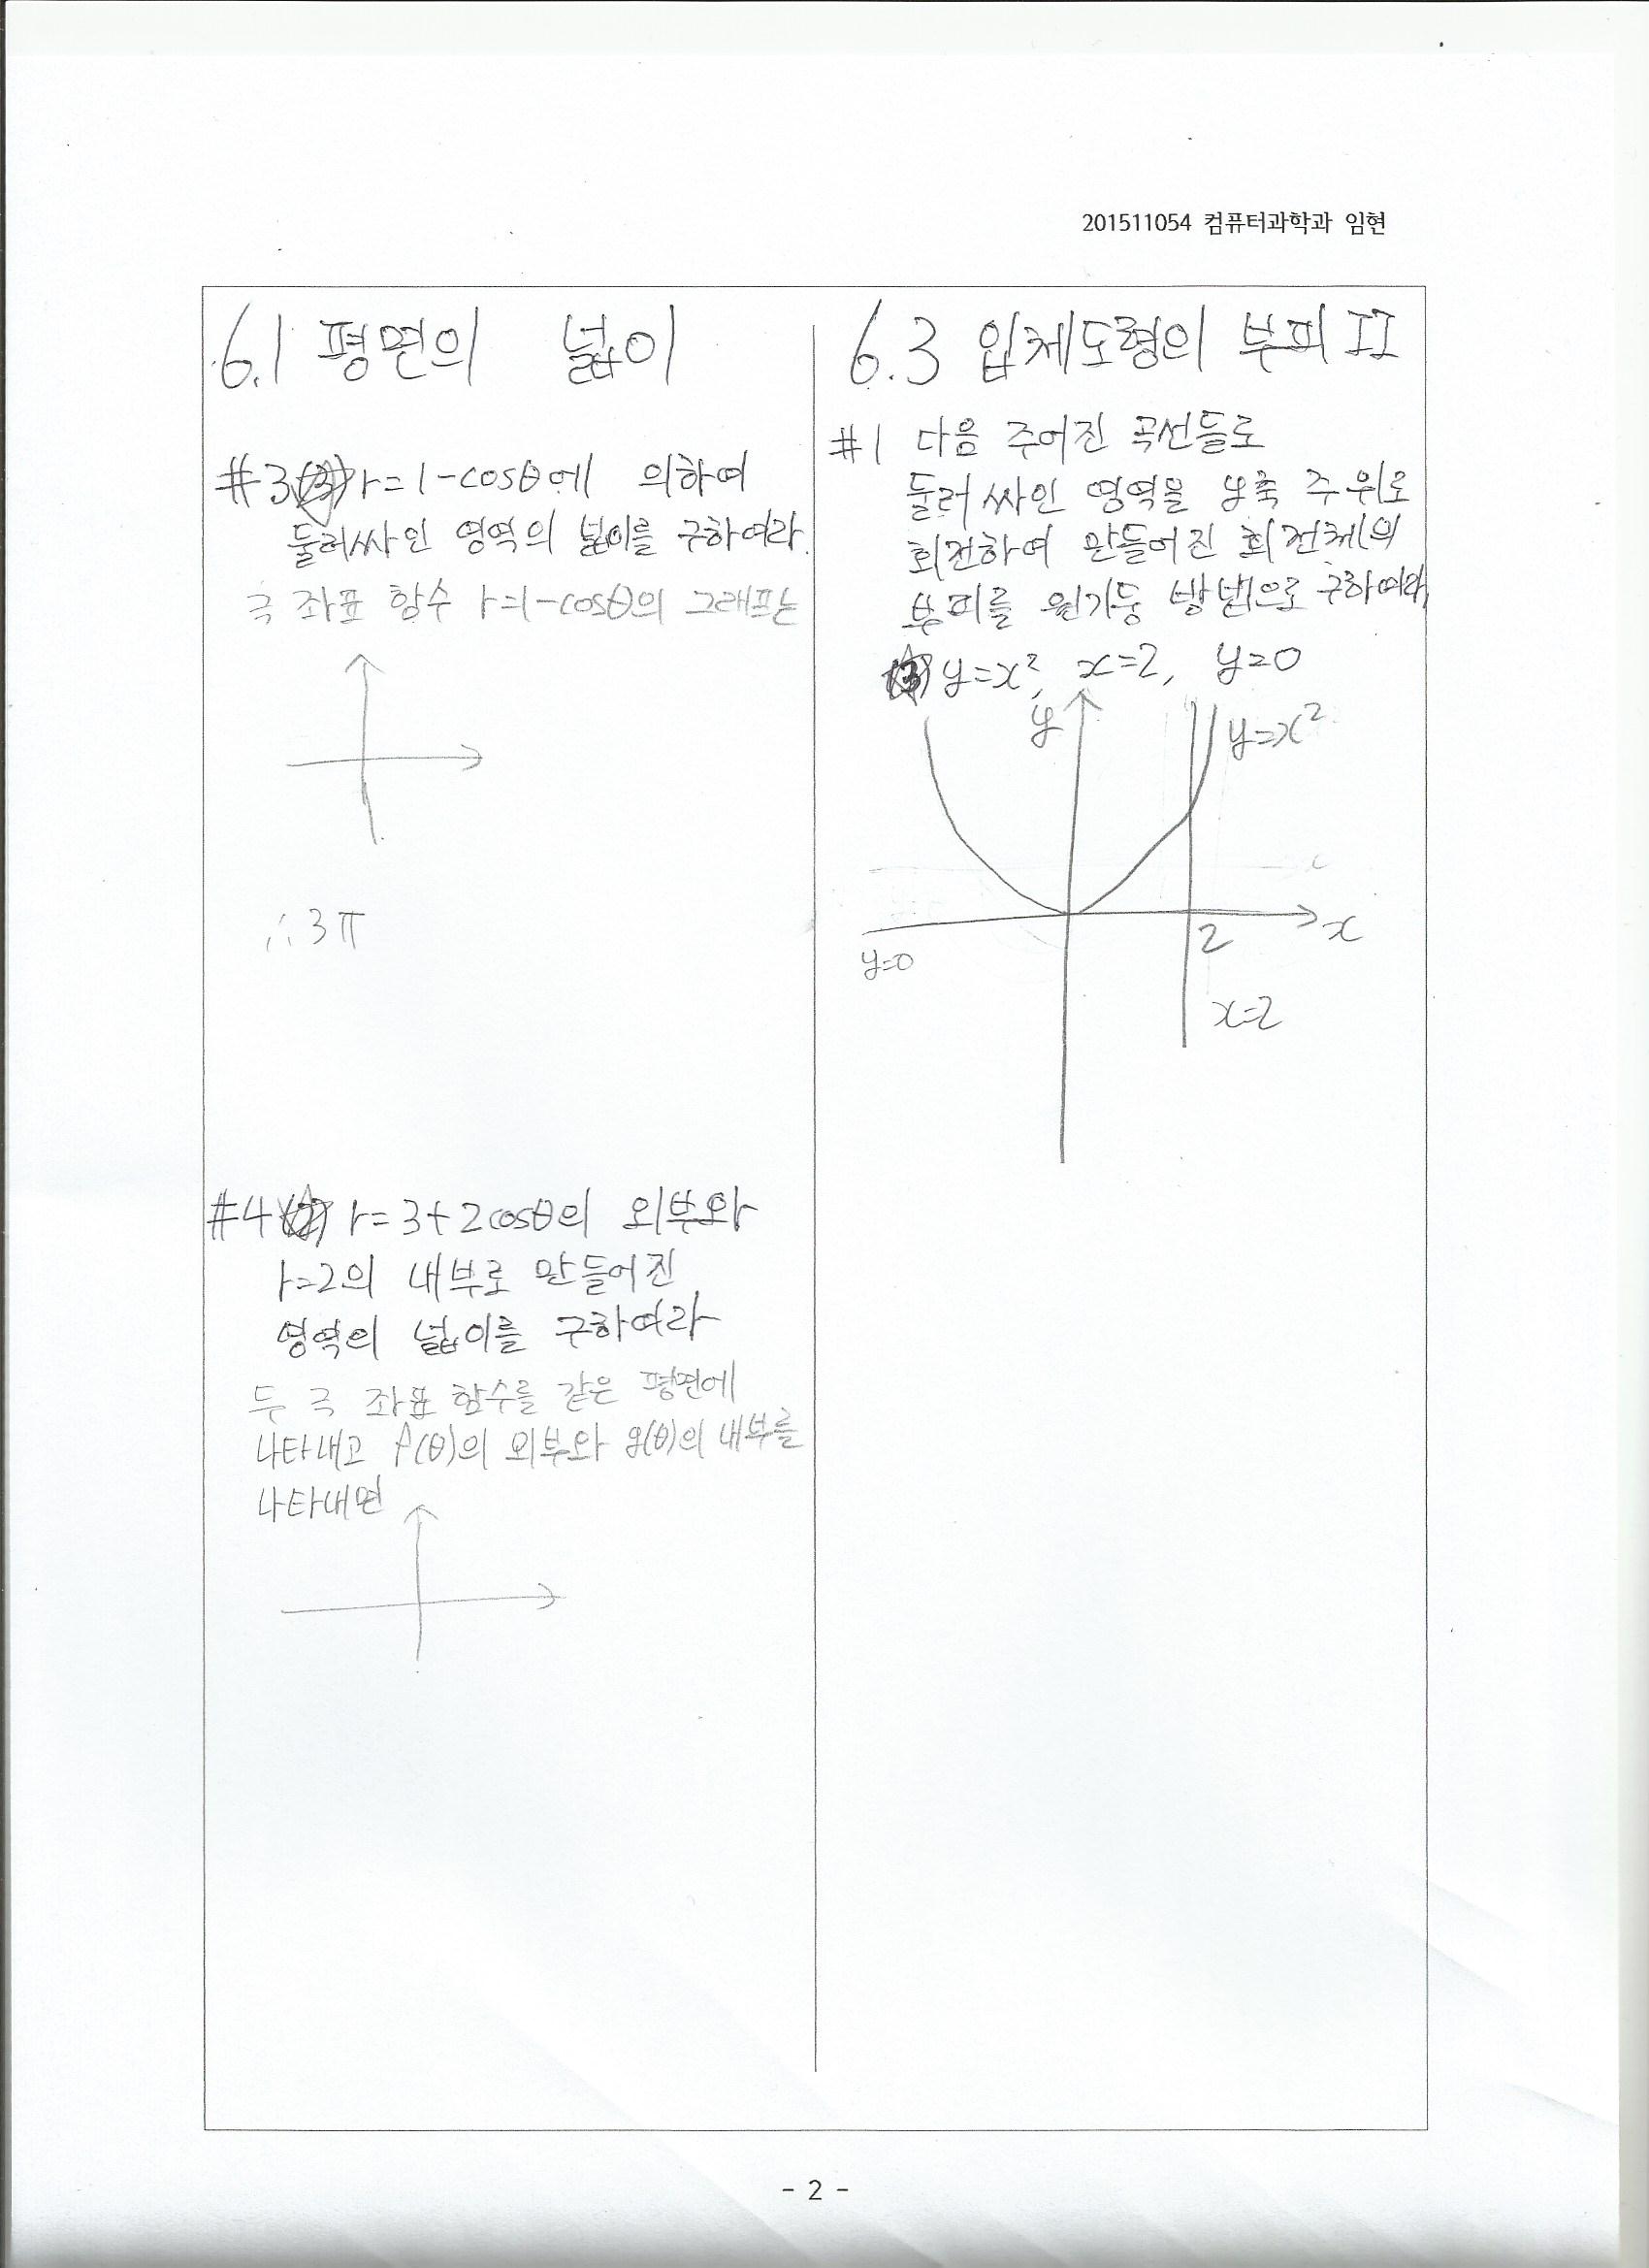 201511054 컴퓨터과학과 임현
6.1 평면의 넓이
#3 (3) r=1-cosθ에 의하여
둘러싸인 영역의 넓이를 구하여라.
극 좌표 함수 r=1-cosθ의 그래프는
∴ 3π
#4 (2) r=3+2cosθ의 외부와
r=2의 내부로 만들어진
영역의 넓이를 구하여라
두 극 좌표 함수를 같은 평면에
나타내고 f(θ)의 외부와 g(θ)의 내부를
나타내면
6.3 입체도형의 부피 II
#1 다음 주어진 곡선들로
둘러싸인 영역을 y축 주위로
회전하여 만들어진 회전체의
부피를 원기둥 방법으로 구하여라,
(3) y=x², x=2, y=0
y
y=x²
x
2
y=0
x=2
- 2 -